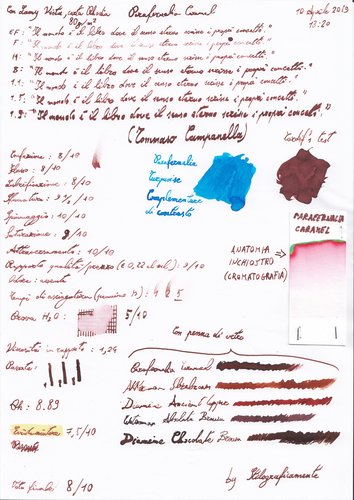 Con Lamy Vista, carta Rhodia 80 g/m²
Parafernalia Caramel
10 Aprile 2013
13:20
EF: "Il mondo è il libro dove il senno eterno scrisse i propri concetti."
F: "Il mondo è il libro dove il senno eterno scrisse i propri concetti."
M: "Il mondo è il libro dove il senno eterno scrisse i propri concetti."
B: "Il mondo è il libro dove il senno eterno scrisse i propri concetti."
1.1: "Il mondo è il libro dove il senno eterno scrisse i propri concetti."
1.5: "Il mondo è il libro dove il senno eterno scrisse i propri concetti."
1.9: "Il mondo è il libro dove il senno eterno scrisse i propri concetti."
(Tommaso Campanella)
Confezione: 8/10
Flusso: 8/10
Lubrificazione: 8/10
Sfumatura: 7½/10
Spiumaggio: 10/10
Saturazione: 9/10
Attraversamento: 10/10
Rapporto qualità/prezzo (€ 0,22 al ml): 7/10
Odore: assente
Tempi di asciugatura (pennino M):
Prova H₂O:
5/10
Parafernalia
Turquoise
Complementare
di contrasto
test
PARAFERNALIA
CARAMEL
ANATOMIA
INCHIOSTRO
(CROMATOGRAFIA)
Con penna di vetro
Viscosità in rapporto: 1,24
Passate:
Ph: 8.83
7,5/10
Voto finale: 8/10
Parafernalia Caramel
Akkerman
Diamine Ancient Copper
Diamine Chocolate Brown
by Stilograficamente